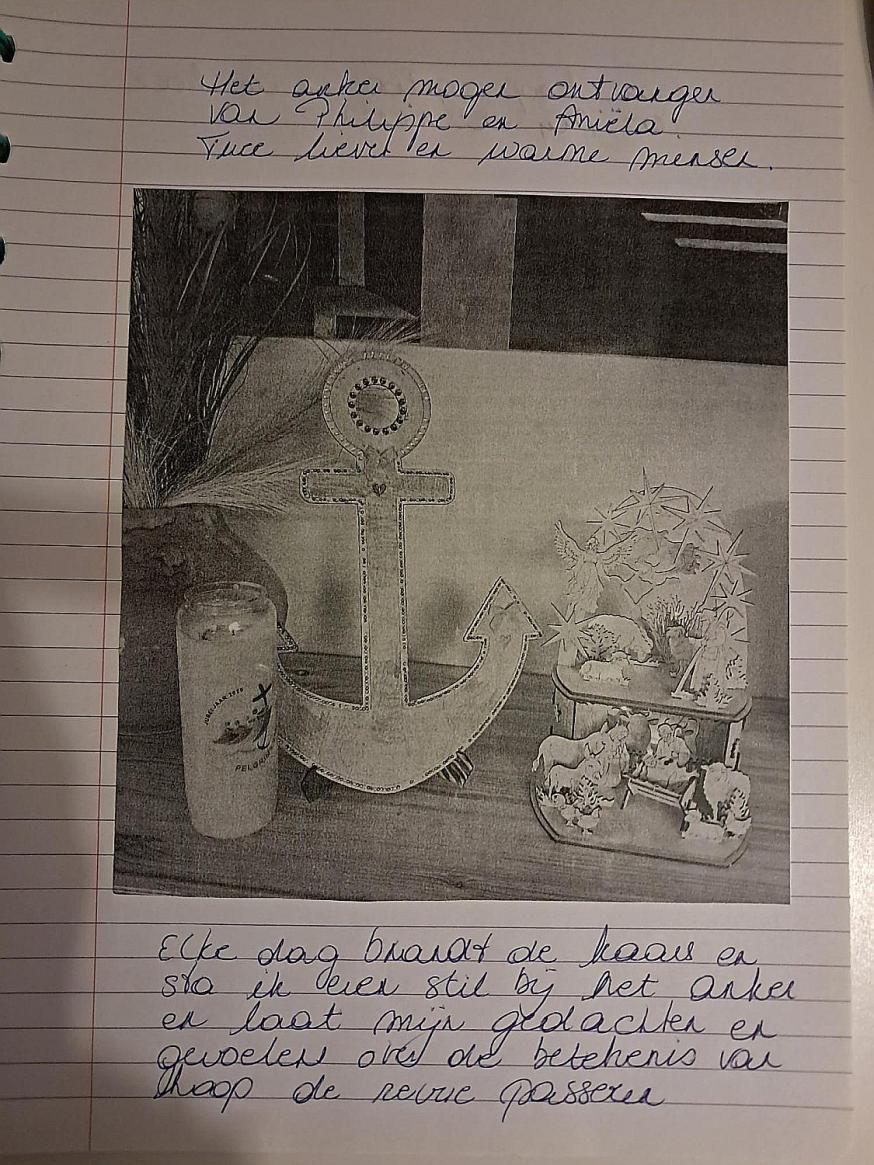 Het anker mogen ontvangen
van Philippe en Aniëla.
Twee lieve en warme mensen.
JUBELJAAR
PELGRI
Elke dag brandt de kaars en
sta ik even stil bij het anker
en laat mijn gedachten en
gevoelens over de betekenis van
hoop de revue passeren